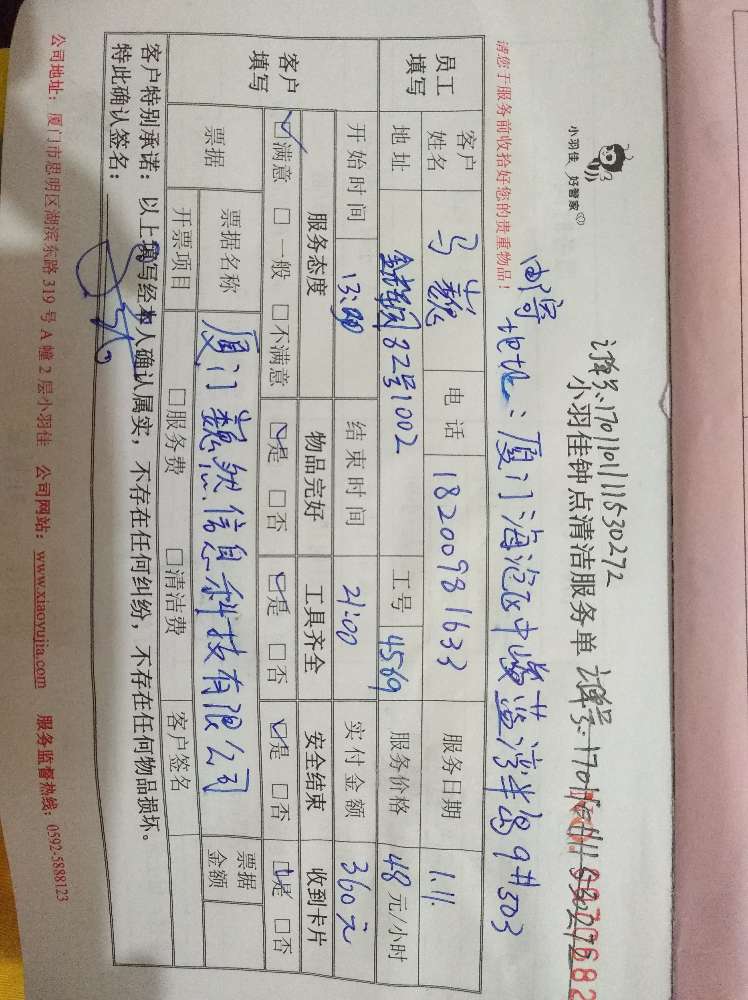 订单号:1701101111530272
小羽佳 好管家
小羽佳钟点清洁服务单
邮寄地址:厦门海沧区中骏蓝湾半岛9#503
请您于服务前收拾好您的贵重物品!
员工填写 客户姓名 马巍 电话 18200981633 服务日期 1.11.
地址 82号1002 工号 4569 服务价格 48元/小时
开始时间 13:00 结束时间 21:00 实付金额 360元
客户填写 服务态度 物品完好 工具齐全 安全结束 收到卡片
☑满意 □一般 □不满意 ☑是 □否 ☑是 □否 ☑是 □否 ☑是 □否
票据 票据名称 厦门巍然信息科技有限公司 票据金额
开票项目 □服务费 □清洁费 客户签名
客户特别承诺:以上填写经本人确认属实,不存在任何纠纷,不存在任何物品损坏。
特此确认签名:
公司地址:厦门市思明区湖滨东路319号A幢2层小羽佳 公司网站:www.xiaoyujia.com 服务监督热线:0592-5888123